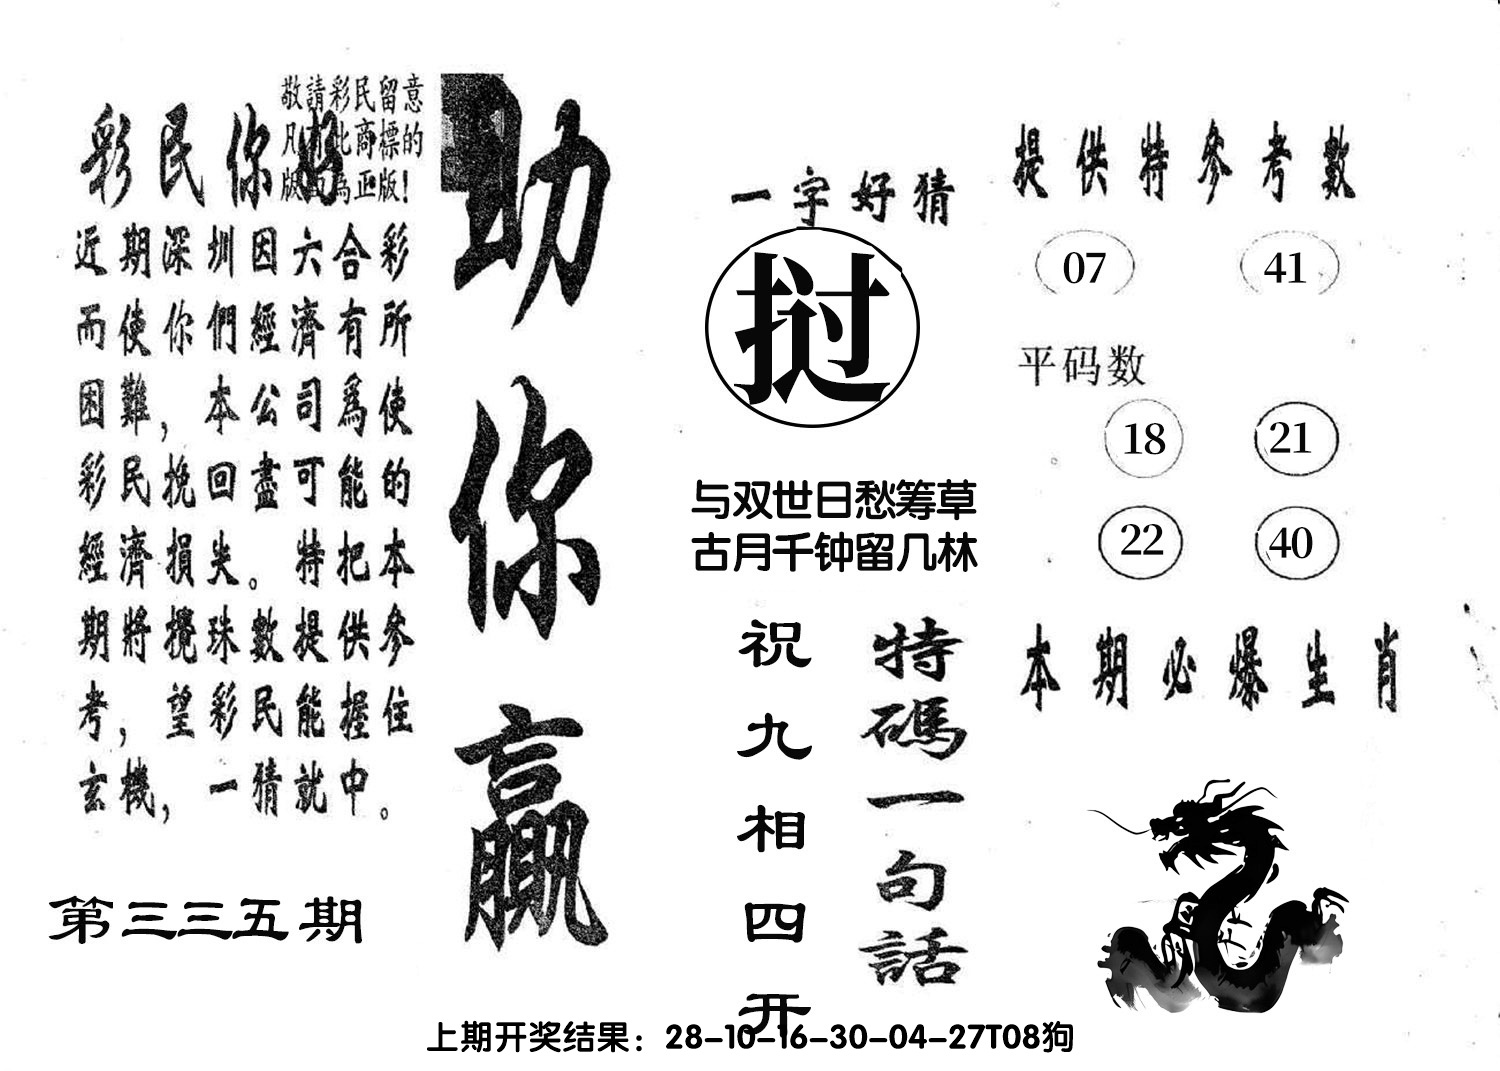 敬請彩民留意
凡有此商標的
版面為正版!
彩民你好
近期深圳因六合彩
而使你們經濟有所
困難，本公司爲使
彩民挽回盡可能的
經濟損失。特把本
期將攪珠數提供參
考，望彩民能握住
玄機，一猜就中。
第三三五期
助你贏
一字好猜
挝
与双世日愁筹草
古月千钟留几林
特碼一句話
祝九相四开
提供特參考數
07 41
平码数
18 21
22 40
本期必爆生肖
上期开奖结果：28-10-16-30-04-27T08狗